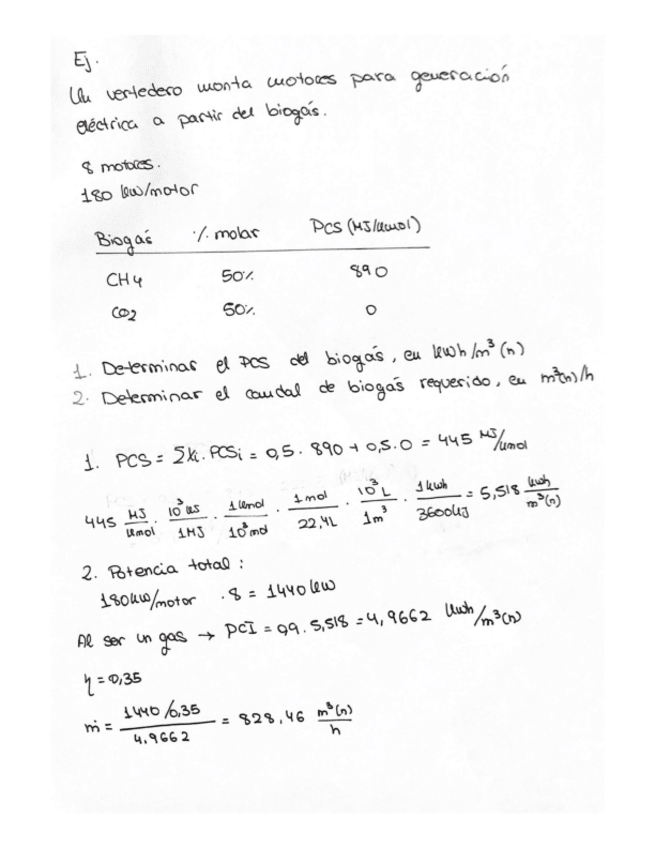 Ej.
Un vertedero monta motores para generación
eléctrica a partir del biogás.
8 motores.
180 kw/motor
Biogás % molar PCS (MJ/kmol)
CH4 50% 890
CO2 50% 0
1. Determinar el PCS del biogás, en kwh/m³ (n)
2. Determinar el caudal de biogás requerido, en m³(n)/h
1. PCS = Σxi. PCSi = 0,5 . 890 + 0,5.0 = 445 MJ/kmol
445 MJ/kmol . 10³ kJ/1MJ . 1 kmol/10³ mol . 1 mol/22,4L . 10³ L/1m³ . 1 kwh/3600kJ = 5,518 kwh/m³(n)
2. Potencia total :
180kw/motor . 8 = 1440 kw
Al ser un gas → PCI = 0,9. 5,518 = 4,9662 kwh/m³(n)
η = 0,35
ṁ = 1440/0,35 / 4,9662 = 828,46 m³(n)/h